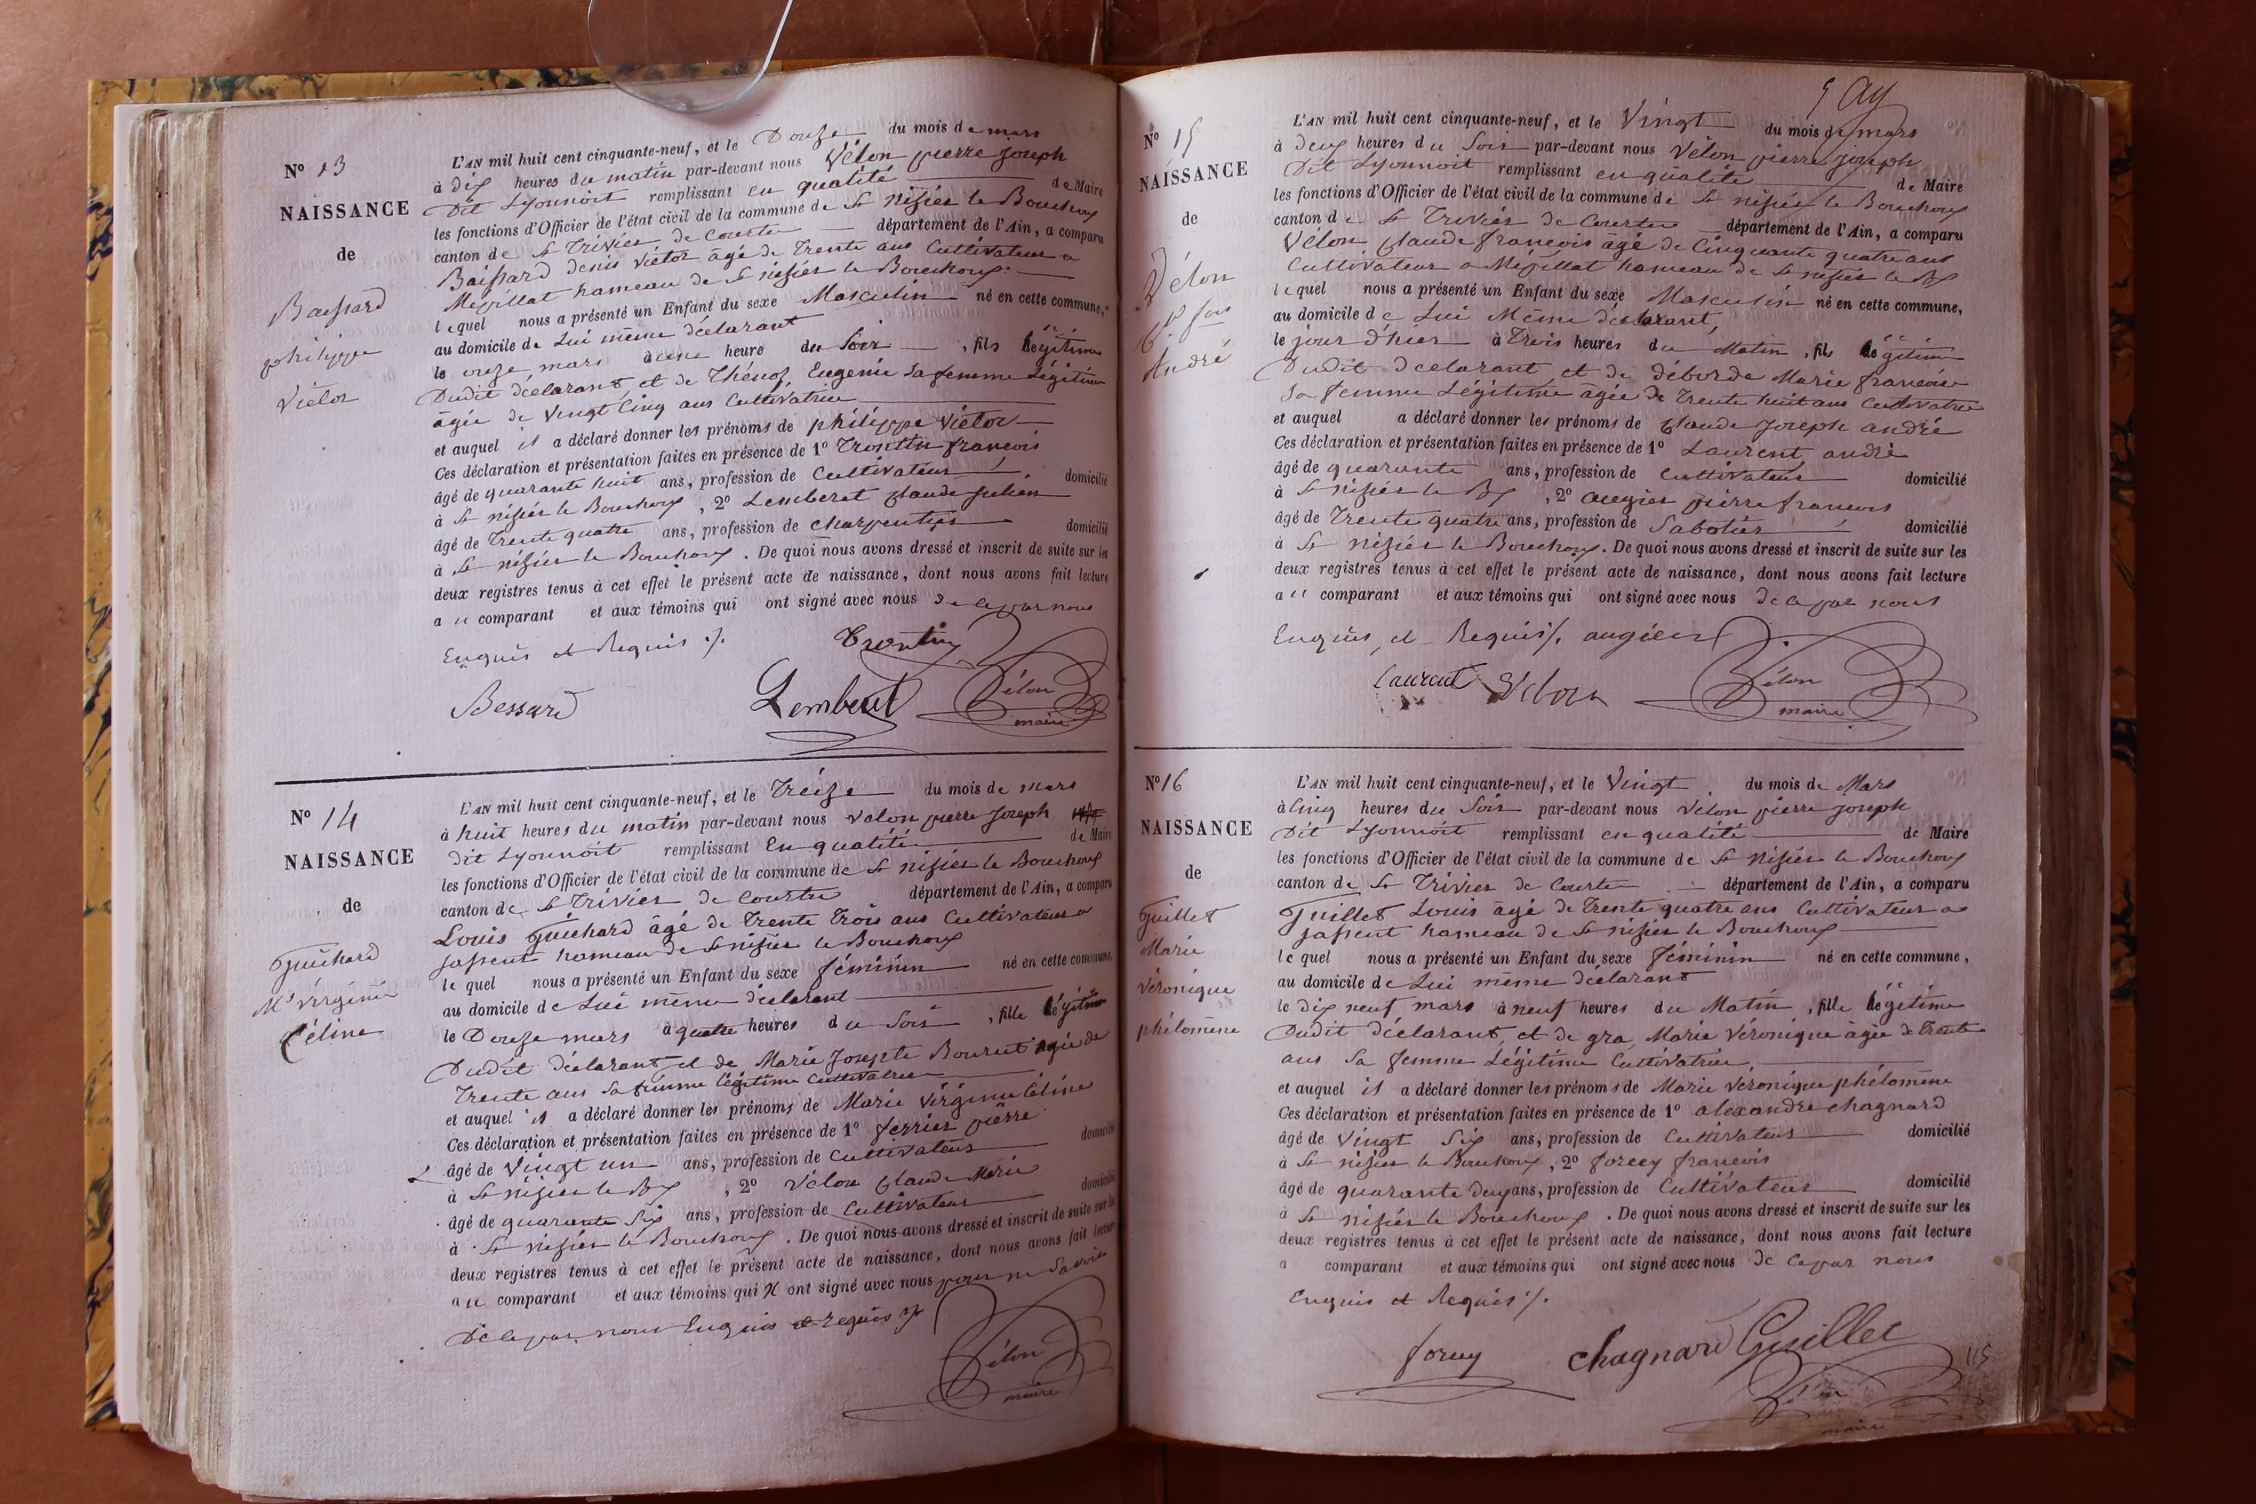 N° 13
NAISSANCE
de
Baissard
philippe
Victor
L'AN mil huit cent cinquante-neuf, et le Douze du mois de mars
à dix heures du matin par-devant nous Vélon pierre joseph
Dit Lyonnoit remplissant en qualité de Maire
les fonctions d'Officier de l'état civil de la commune de St nizier le Bouchoux
canton de St Trivier de Courte département de l'Ain, a comparu
Baissard denis Victor âgé de Trente ans Cultivateur a
Mézillat hameau de St nizier le Bouchoux
lequel nous a présenté un Enfant du sexe Masculin né en cette commune,
au domicile de Lui même déclarant
le onze mars à une heure du Soir, fils légitime
Dudit déclarant, et de Eugenie Sa femme Légitime
âgée de Vingt Cinq ans Cultivatrice
et auquel il a déclaré donner les prénoms de philippe Victor
Ces déclaration et présentation faites en présence de 1° Trontin françois
âgé de quarante huit ans, profession de Cultivateur domicilié
à St nizier le Bouchoux, 2° Lemberet Claude Julien
âgé de Trente quatre ans, profession de charpentier domicilié
à St nizier le Bouchoux. De quoi nous avons dressé et inscrit de suite sur les
deux registres tenus à cet effet le présent acte de naissance, dont nous avons fait lecture
au comparant et aux témoins qui ont signé avec nous de ce par nous
Enquis et Requis ./.
Trontin
Bessard Lemberet Vélon
maire
N° 14
NAISSANCE
de
Guichard
Me Virginie
Céline
L'AN mil huit cent cinquante-neuf, et le Treize du mois de mars
à huit heures du matin par-devant nous Velon pierre Joseph
dit Lyonnoit remplissant En qualité de Maire
les fonctions d'Officier de l'état civil de la commune de St nizier le Bouchoux
canton de St Trivier de Courte département de l'Ain, a comparu
Louis Guichard âgé de Trente Trois ans Cultivateur a
hameau de St nizier le Bouchoux
lequel nous a présenté un Enfant du sexe féminin né en cette commune,
au domicile de Lui même déclarant
le Douze mars à quatre heures du Soir, fille légitime
Dudit déclarant et de Marie Josepte Bouret agée de
Trente ans Sa femme légitime Cultivatrice
et auquel il a déclaré donner les prénoms de Marie Virginie Céline
Ces déclaration et présentation faites en présence de 1° ferrier pierre
âgé de Vingt un ans, profession de Cultivateur domicilié
à St nizier le Bx, 2° Vélon Claude Marie
âgé de quarante Six ans, profession de Cultivateur domicilié
à St nizier le Bouchoux. De quoi nous avons dressé et inscrit de suite sur les
deux registres tenus à cet effet le présent acte de naissance, dont nous avons fait lecture
au comparant et aux témoins qui n ont signé avec nous pour ne Savoir
De ce par nous Enquis et requis ./.
Vélon
maire
N° 15
NAISSANCE
de
Vélon
André
L'AN mil huit cent cinquante-neuf, et le Vingt du mois de mars
à deux heures du Soir par-devant nous Vélon pierre joseph
Dit Lyonnoit remplissant en qualité de Maire
les fonctions d'Officier de l'état civil de la commune de St nizier le Bouchoux
canton de St Trivier de Courte département de l'Ain, a comparu
Vélon Claude françois âgé de Cinquante quatre ans
Cultivateur a Mézillat hameau de St nizier le Bx
lequel nous a présenté un Enfant du sexe Masculin né en cette commune,
au domicile de Lui Même déclarant,
le jour d'hier à Trois heures du Matin, fils légitime
Dudit déclarant et de déborde Marie françoise
Sa femme Légitime âgée de Trente huit ans Cultivatrice
et auquel a déclaré donner les prénoms de Claude Joseph andré
Ces déclaration et présentation faites en présence de 1° Laurent andré
âgé de quarante ans, profession de Cultivateur domicilié
à St nizier le Bx, 2° augier pierre francois
âgé de Trente quatre ans, profession de Sabotier domicilié
à St nizier le Bouchoux. De quoi nous avons dressé et inscrit de suite sur les
deux registres tenus à cet effet le présent acte de naissance, dont nous avons fait lecture
au comparant et aux témoins qui ont signé avec nous de ce par nous
Enquis, et Requis ./. augier
Laurent Velon Vélon
maire
N° 16
NAISSANCE
de
Guillet
Marie
Véronique
phélomène
L'AN mil huit cent cinquante-neuf, et le Vingt du mois de Mars
à Cinq heures du Soir par-devant nous Velon pierre joseph
Dit Lyonnoit remplissant en qualité de Maire
les fonctions d'Officier de l'état civil de la commune de St nizier le Bouchoux
canton de St Trivier de Courte département de l'Ain, a comparu
Guillet Louis âgé de Trente quatre ans Cultivateur a
hameau de St nizier le Bouchoux
lequel nous a présenté un Enfant du sexe féminin né en cette commune,
au domicile de Lui même déclarant
le dix neuf mars à neuf heures du Matin, fille légitime
Dudit déclarant, et de gra, Marie Véronique âgée de Trente
ans Sa femme Légitime Cultivatrice,
et auquel il a déclaré donner les prénoms de Marie Veronique phélomène
Ces déclaration et présentation faites en présence de 1° alexandre chagnard
âgé de Vingt Six ans, profession de Cultivateur domicilié
à St nizier le Bouchoux, 2° forcey francois
âgé de quarante deux ans, profession de Cultivateur domicilié
à St nizier le Bouchoux. De quoi nous avons dressé et inscrit de suite sur les
deux registres tenus à cet effet le présent acte de naissance, dont nous avons fait lecture
a comparant et aux témoins qui ont signé avec nous de ce par nous
Enquis et Requis ./.
forcey chagnard Guillet
Vélon
maire
115